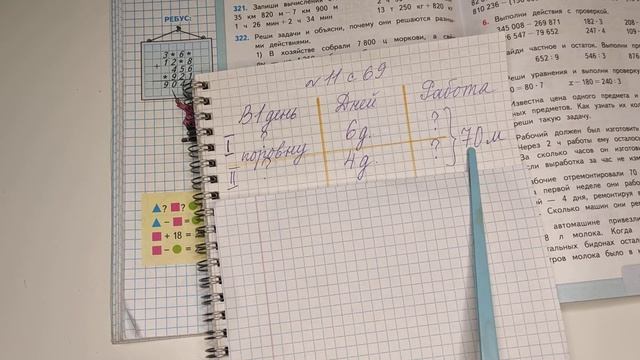 РЕБУС:
3*6*
+ 12*8
456
*92*
321. Запиши
35 км 820 м – 7 км 900 м
1 ч 26 мин + 2 ч 34 мин
13 т 250 кг + 820 к
322. Реши задачи и объясни, почему они решаются разны-
ми действиями.
1) В хозяйстве собрали 7 800 ц моркови, а свё-
810 236 – (150
6. Выполни действия с проверкой.
345 008 – 269 871
182 · 3
208
6 547 + 79 652
247 · 4
109
айди частное и остаток. Выполни
652 : 9
546 : 3
876
еши уравнения и выполни прове
= 80 · 7
x – 180 = 240 : 3
Известна цена одного предмета и
ных предметов. Как узнать их ко
реши такую задачу.
Рабочий должен был изготовить
Через 2 ч работы ему осталось
За сколько часов он изготови
если выработка за час не изм
абочие отремонтировали 70
а первой неделе они рабо
— 4 дня, ремонтируя в
Сколько машин они рем
автомашине привезли
8 л молока. Когда
тальных бидонах оста
тров молока было в
N 11 с 69
В 1 день
Дней
Работа
I
6 д.
?
поровну
70 м
II
4 д.
?
? ?
– =
+ 18 =
– =